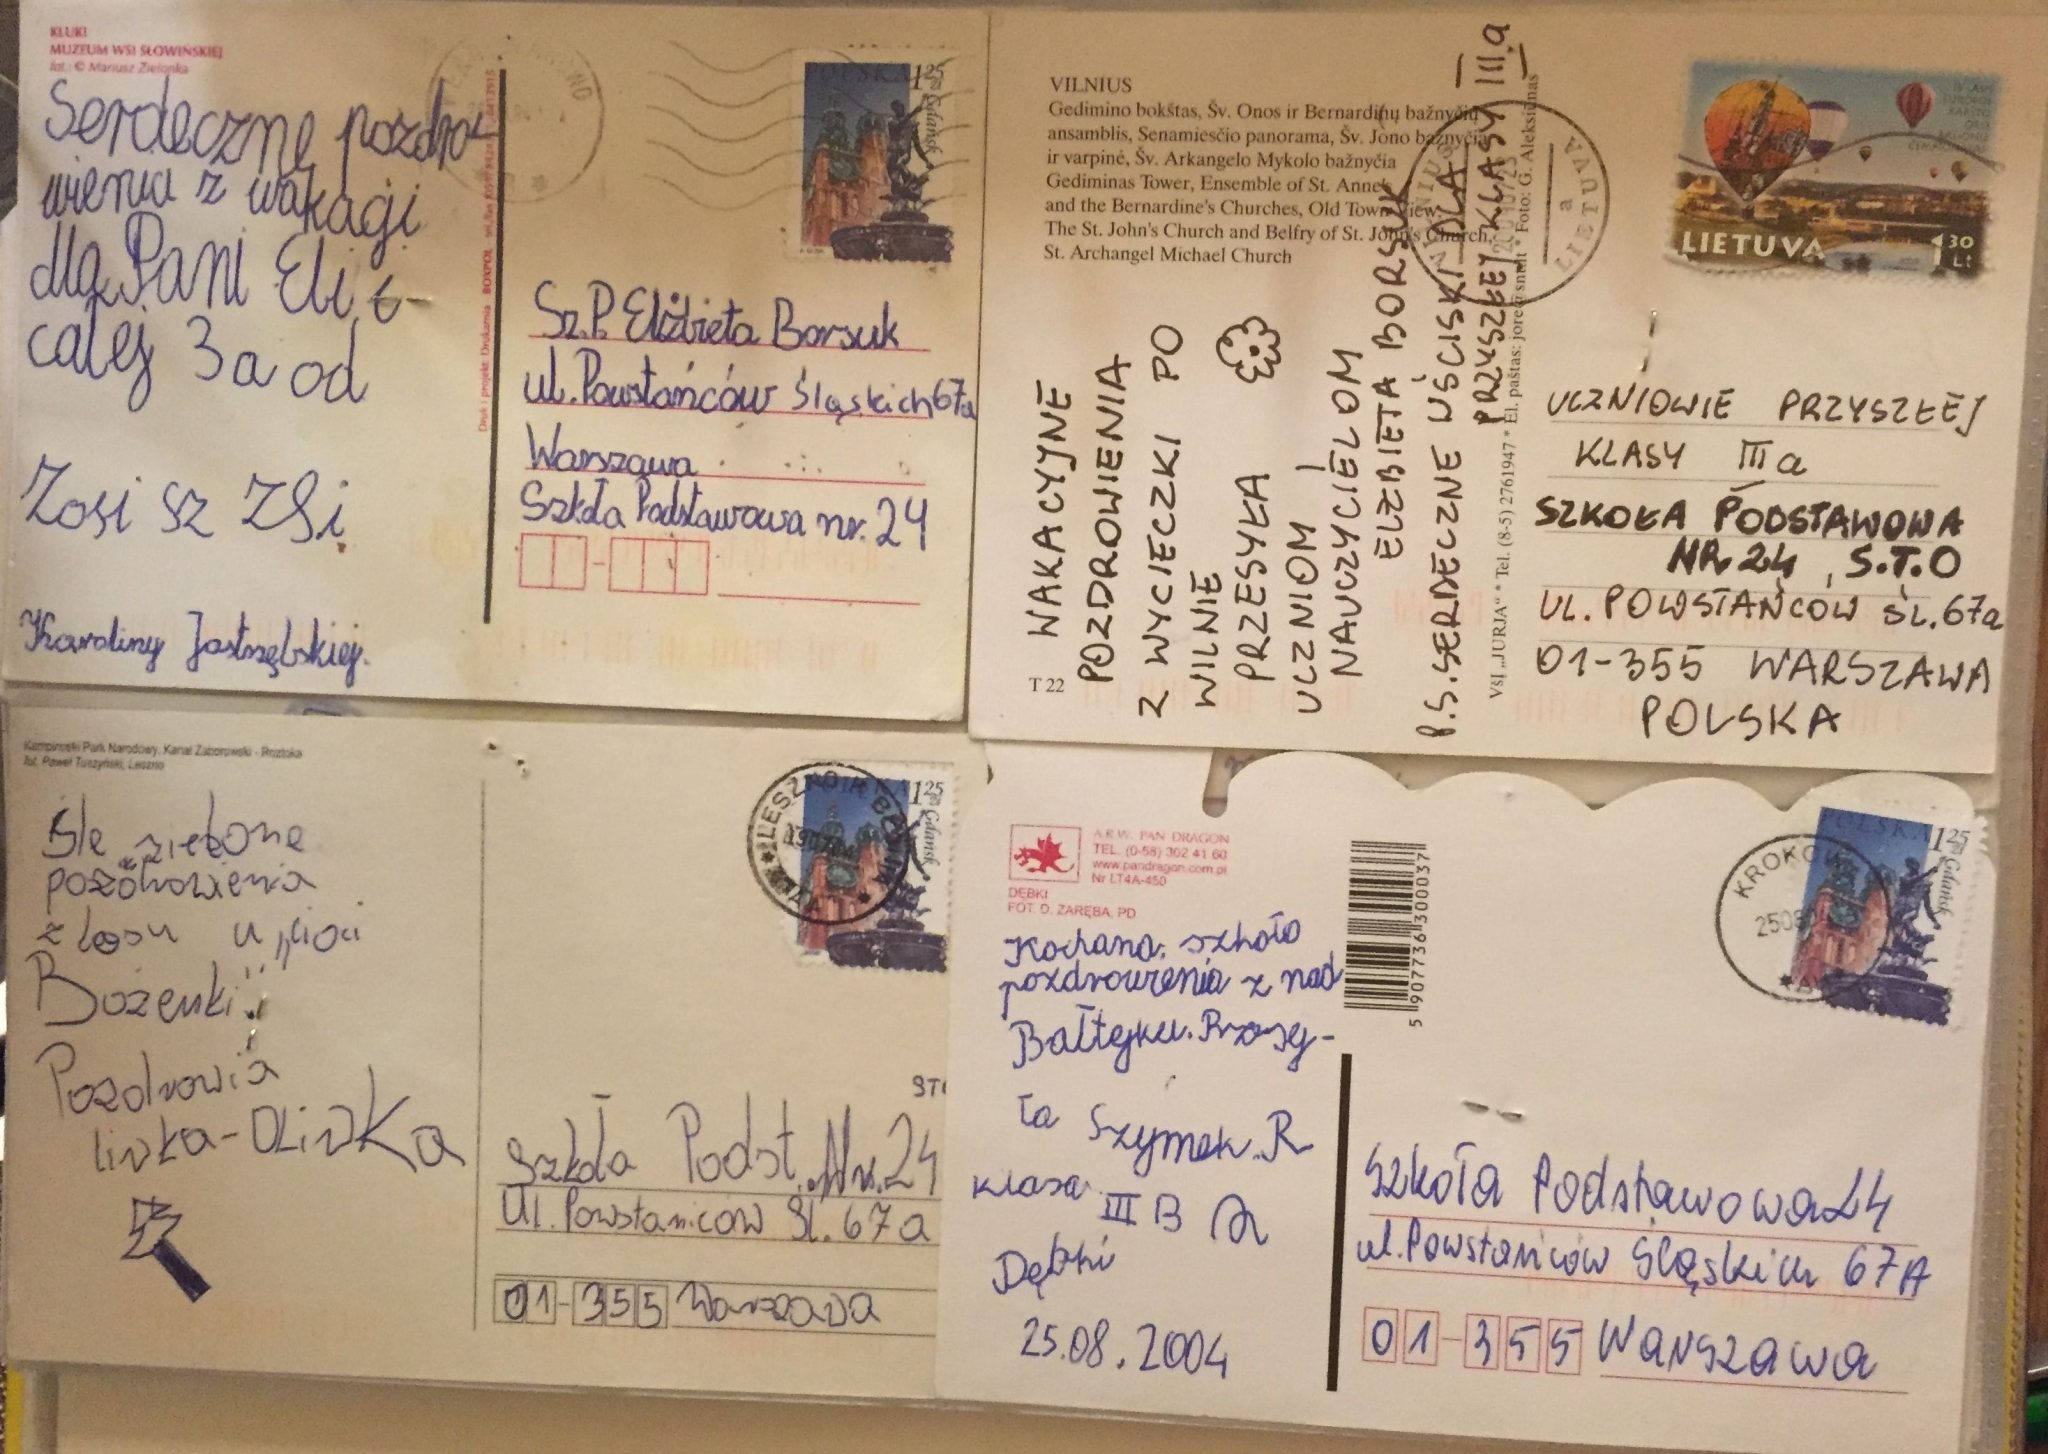 KLUKI
MUZEUM WSI SŁOWIŃSKIEJ
fot.: © Mariusz Zielonka
Serdeczne pozdro-
wienia z wakacji
dla Pani Eli i
całej 3a od
Zosi
Karoliny Jastrzębskiej.
Druk i projekt: Drukarnia BOXPOL
POLSKA 1 25
Gdańsk
Sz.P. Elżbieta Borsuk
ul. Powstańców Śląskich 67a
Warszawa
Szkoła Podstawowa nr. 24
VILNIUS
Gedimino bokštas, Šv. Onos ir Bernardinų bažnyčių
ansamblis, Senamiesčio panorama, Šv. Jono bažnyčia
ir varpinė, Šv. Arkangelo Mykolo bažnyčia
Gediminas Tower, Ensemble of St. Anne's
and the Bernardine's Churches, Old Town View,
The St. John's Church and Belfry of St. John's Church,
St. Archangel Michael Church
T 22
WAKACYJNE
POZDROWIENIA
Z WYCIECZKI PO
WILNIE
PRZESYŁA
UCZNIOM I
NAUCZYCIELOM
ELŻBIETA BORSUK
P.S. SERDECZNE UŚCISKI DLA
PRZYSZŁEJ KLASY III a
VšĮ „JURJA“ * Tel. (8-5) 2761947 * El. paštas: * Foto: G. Aleksiūnas
VILNIUS
LIETUVA
a
LIETUVA 1 30 Lt
UCZNIOWIE PRZYSZŁEJ
KLASY III a
SZKOŁA PODSTAWOWA
NR 24, S.T.O
UL. POWSTAŃCÓW ŚL. 67a
01-355 WARSZAWA
POLSKA
Kampinoski Park Narodowy, Kanał Zaborowski - Roztoka
fot. Paweł Tuszyński, Leszno
Śle zielone
pozdrowienia
z lasu u „cioci
Bożenki"
Pozdrowia
linka-OLINKA
1 25
Gdańsk
Szkoła Podst. Nr. 24
Ul. Powstańców Śl. 67a
01-355 Warszawa
A.R.W. PAN DRAGON
TEL. (0-58) 302 41 60
www.pandragon.com.pl
Nr LT4A-450
DĘBKI
FOT. D. ZARĘBA, PD
5 907736 300037
Kochana szkoło
pozdrowienia z nad
Bałtyku. Przesy-
ła Szymek. R
klasa III B
Dębki
25.08.2004
KROKOWA
POLSKA 1 25
Gdańsk
Szkoła Podstawowa 24
ul. Powstańców Śląskich 67A
01-355 Warszawa